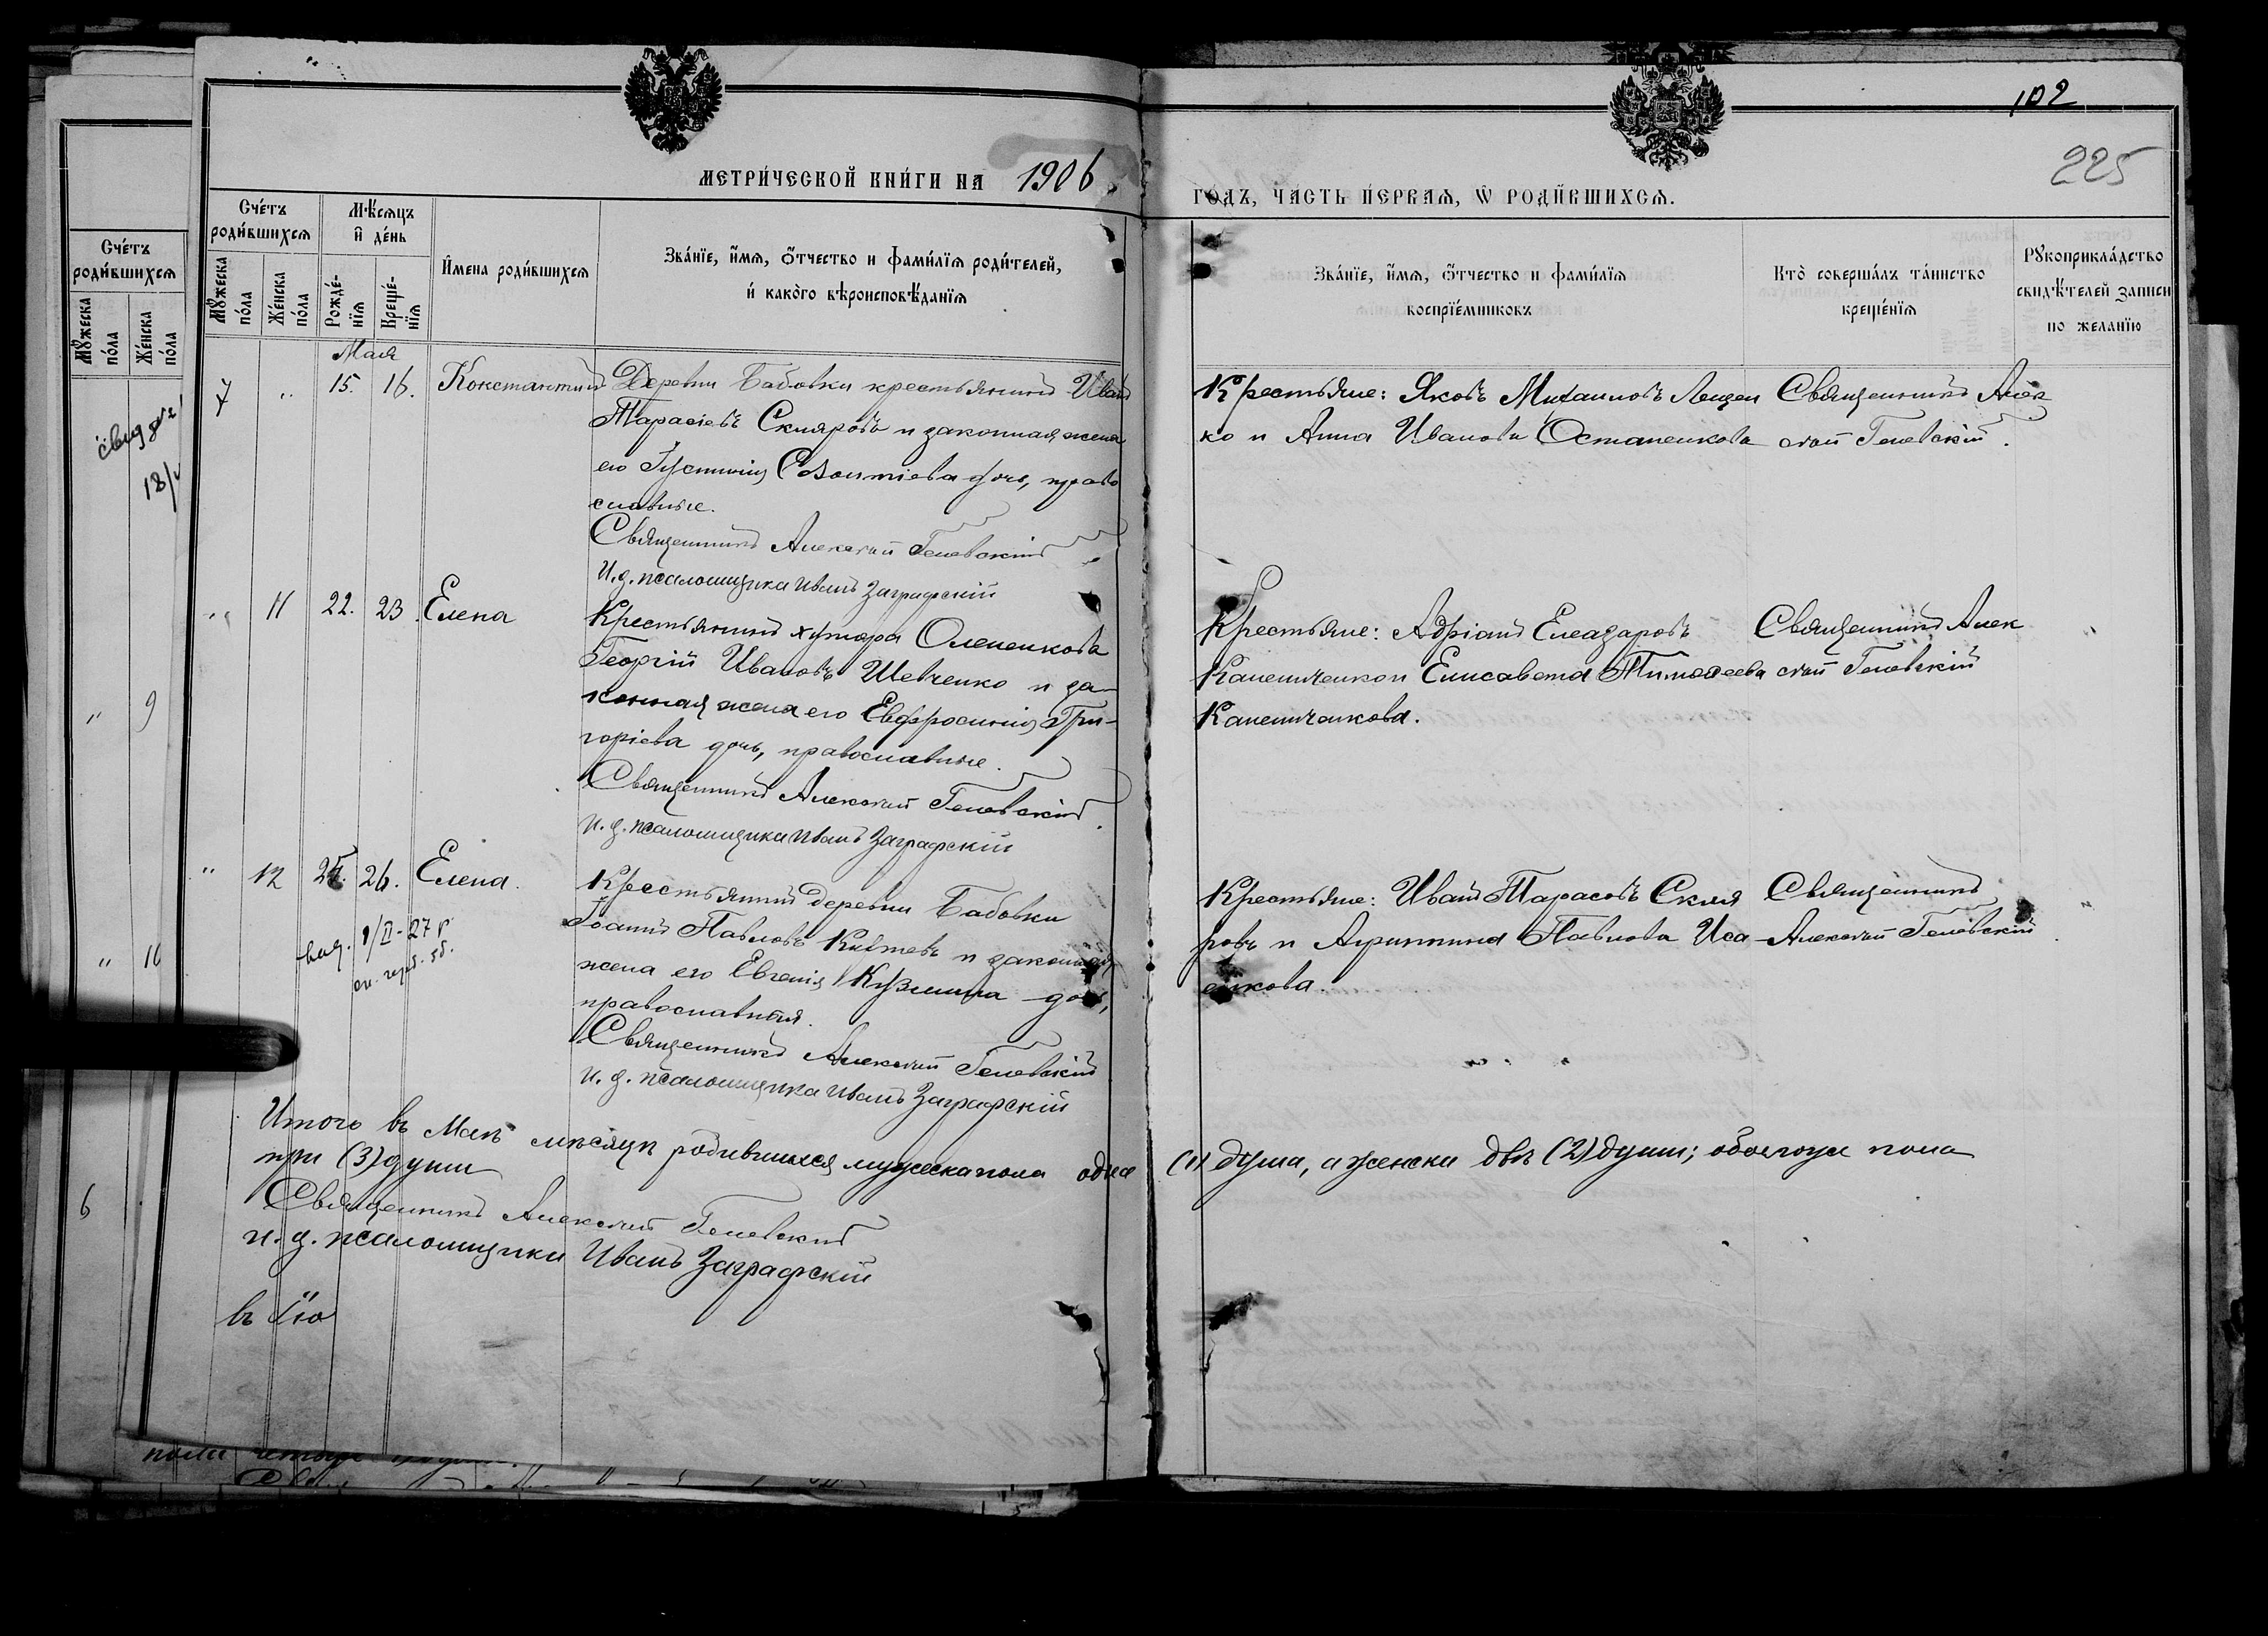 МЕТРИ́ЧЕСКОЙ КНИ́ГИ НА 1906
ГО́ДЪ, ЧА́СТЬ ПЕ́РВАЯ, Ѡ РОДИ́ВШИХСЯ.
102
225
Сче́тъ роди́вшихся
Мꙋ́жеска по́ла
Же́нска по́ла
Сче́тъ роди́вшихся
Мꙋ́жеска по́ла
Же́нска по́ла
Мѣ́сяцъ и де́нь
Рожде́нїя
Креще́нїя
Имена роди́вшихся
Зва́нїе, и́мя, ѻ́тчество и фами́лїя роди́телей,
и како́го вѣроисповѣ́данїя
Зва́нїе, и́мя, ѻ́тчество и фами́лїя
воспрїе́мниковъ
Кто̀ соверша́лъ та́инство
креще́нїя
Рꙋкоприкла́дство
свидѣ́телей записи
по жела́нїю
Мая
7 " 15. 16. Константинъ
Деревни Бабовки крестьянинъ Иванъ
Тарасіевъ Скляровъ и законная жена
его Іустинія Созонтіева дочь, право
славные.
Священникъ Алексій
И. д. псаломщика Иванъ Заграфскій
Крестьяне: Яковъ Михаиловъ Лещен
ко и Анна Иванова Остапенкова
Священникъ Алек
сій
" 11 22. 23. Елена
Крестьянинъ хутора Оленникова
Георгій Ивановъ Шевченко и за-
конная жена его Евфросинія Гри-
горіева дочь, православные.
Священникъ Алексій
И. д. псаломщика Иванъ Заграфскій
Крестьяне: Адріанъ Елеазаровъ
Елисавета Тимоѳеева
Священникъ Алек
сій
" 12 25. 26. Елена.
Крестьянинъ деревни Бабовки
Іоаннъ Павловъ и законная
жена его Евгенія Кузьмина дочь,
православная.
Священникъ Алексій
И. д. псаломщика Иванъ Заграфскій
Крестьяне: Иванъ Тарасовъ Скля
ровъ и Агриппина Павлова Иса
енкова.
Священникъ
Алексій
1/II-27 г.
" 9
" 10
6
18/
Итого въ Маѣ мѣсяцѣ родившихся мужеска пола одна (1) душа, а женска двѣ (2) души; обоего пола
три (3) души
Священникъ Алексій
и. д. псаломщика Иванъ Заграфскій
въ Iю